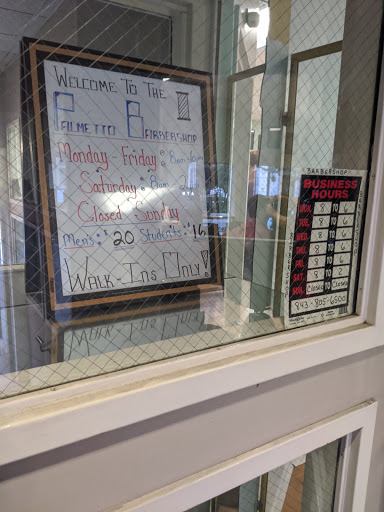 Welcome To The
Palmetto Barbershop
Monday - Friday 8am
Saturday 8am
Closed - Sunday
Men's $20 Students $16
Walk-Ins Only!
BARBERSHOP
BUSINESS
HOURS
MON. 8 TO 6
TUE. 8 TO 6
WED. 8 TO 6
THU. 8 TO 6
FRI. 8 TO 6
SAT. 8 TO 2
SUN. Closed TO Closed
843-805-6500